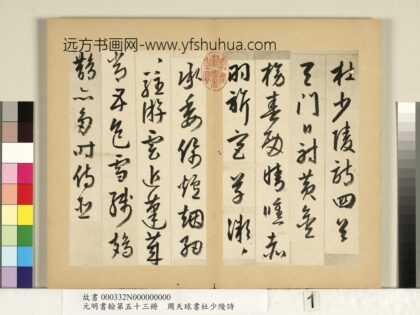 远方书画网-www.yfshuhua.com
杜少陵詩四首
天門日射黃金
榜春殿晴曛赤
羽旂宮草微ヽ
承委佩爐烟細
ヽ駐游雲近蓬萊
常五色雪殘鳷
鵲亦多時侍臣
故書 000332N000000000
元明書翰第五十三冊 周天球書杜少陵詩
1